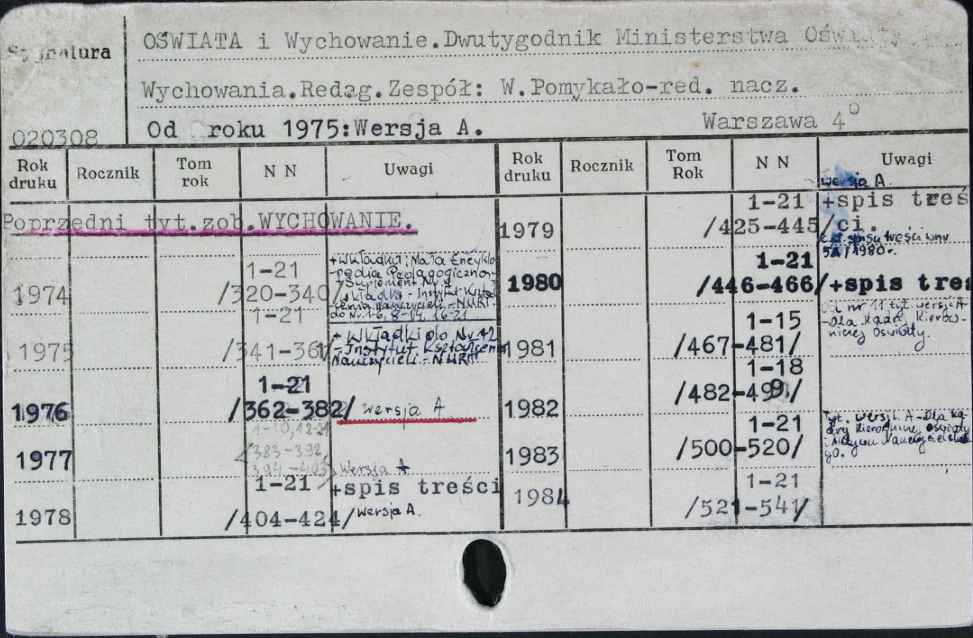 Sygnatura
OŚWIATA i Wychowanie.Dwutygodnik Ministerstwa Oświaty i
Wychowania.Redag.Zespół: W.Pomykało-red. nacz.
020308 Od roku 1975:Wersja A. Warszawa 4°
Rok druku Rocznik Tom rok N N Uwagi Rok druku Rocznik Tom Rok N N Uwagi
Poprzedni tyt.zob.WYCHOWANIE.
1974 1-21 /320-340/
+ Wkładki: Mała Encyklo-
pedia Pedagogiczna
+ Suplement Nr
Wkładka - Instytut
nauczycieli - NURT
do Nr 1-6, 8-14, 16-21
1975 1-21 /341-361/
+ Wkładki do Nr 12
- Instytut Kształcenia
Nauczycieli - NURT
1976 1-21 /362-382/ wersja A
1977 1-10, 12-21 /383-392, 394-403/ Wersja A
1978 1-21 /404-424/ +spis treści wersja A.
1979 1-21 /425-445/ wersja A. +spis treś
/ci.
spisu treści w nr
5A/1980r.
1980 1-21 /446-466/ +spis treś
1981 1-15 /467-481/
nr 11 tyt. wersji A
- Dla Kadry Kierow-
niczej Oświaty.
1982 1-18 /482-499/
1983 1-21 /500-520/
Tyt. wersji A - Dla Ka-
dry Kierowniczej Oświaty
go.
1984 1-21 /521-541/